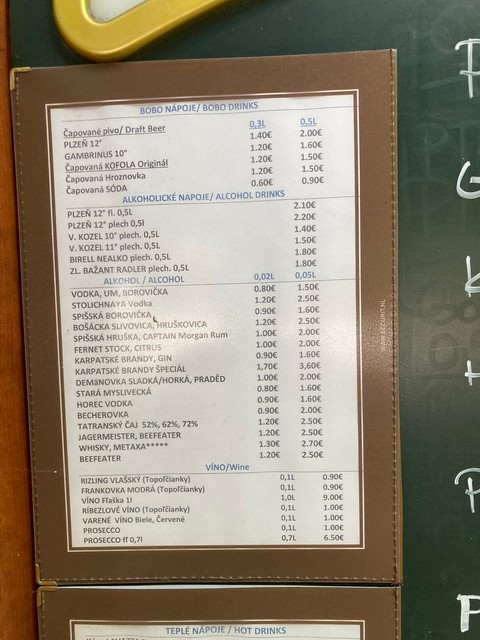 BOBO NÁPOJE/ BOBO DRINKS
Čapované pivo/ Draft Beer 0,3L 0,5L
PLZEŇ 12° 1.40€ 2.00€
GAMBRINUS 10° 1.20€ 1.60€
Čapovaná KOFOLA Originál 1.20€ 1.50€
Čapovaná Hroznovka 1.20€ 1.50€
Čapovaná SÓDA 0.60€ 0.90€
ALKOHOLICKÉ NAPOJE/ ALCOHOL DRINKS
PLZEŇ 12° fl. 0,5L 2.10€
PLZEŇ 12° plech 0,5l 2.20€
V. KOZEL 10° plech. 0,5L 1.40€
V. KOZEL 11° plech. 0,5L 1.50€
BIRELL NEALKO plech. 0,5L 1.80€
ZL. BAŽANT RADLER plech. 0,5L 1.80€
ALKOHOL / ALCOHOL 0,02L 0,05L
VODKA, UM, BOROVIČKA 0.80€ 1.50€
STOLICHNAYA Vodka 1.20€ 2.50€
SPIŠSKÁ BOROVIČKA 0.90€ 1.60€
BOŠÁCKA SLIVOVICA, HRUŠKOVICA 1.20€ 2.50€
SPIŠSKÁ HRUŠKA, CAPTAIN Morgan Rum 1.00€ 2.00€
FERNET STOCK, CITRUS 1.00€ 2.00€
KARPATSKÉ BRANDY, GIN 0.90€ 1.60€
KARPATSKÉ BRANDY ŠPECIÁL 1,70€ 3,60€
DEMäNOVKA SLADKÁ/HORKÁ, PRADĚD 1.00€ 2.00€
STARÁ MYSLIVECKÁ 0.80€ 1.60€
HOREC VODKA 0.90€ 1.60€
BECHEROVKA 0.90€ 2.00€
TATRANSKÝ ČAJ 52%, 62%, 72% 1.20€ 2.50€
JAGERMEISTER, BEEFEATER 1.20€ 2.50€
WHISKY, METAXA***** 1.30€ 2.70€
BEEFEATER 1.20€ 2.50€
VÍNO/Wine
RIZLING VLAŠSKÝ (Topoľčianky) 0,1L 0.90€
FRANKOVKA MODRÁ (Topoľčianky) 0,1L 0.90€
VÍNO Fľaška 1l 1,0L 9.00€
RÍBEZLOVÉ VÍNO (Topoľčianky) 0,1L 1.00€
VARENÉ VÍNO Biele, Červené 0,1L 1.00€
PROSECCO 0,1L 1.00€
PROSECCO fľ 0,7l 0,7L 6.50€
WWW.SECURIT.NL
TEPLÉ NÁPOJE / HOT DRINKS